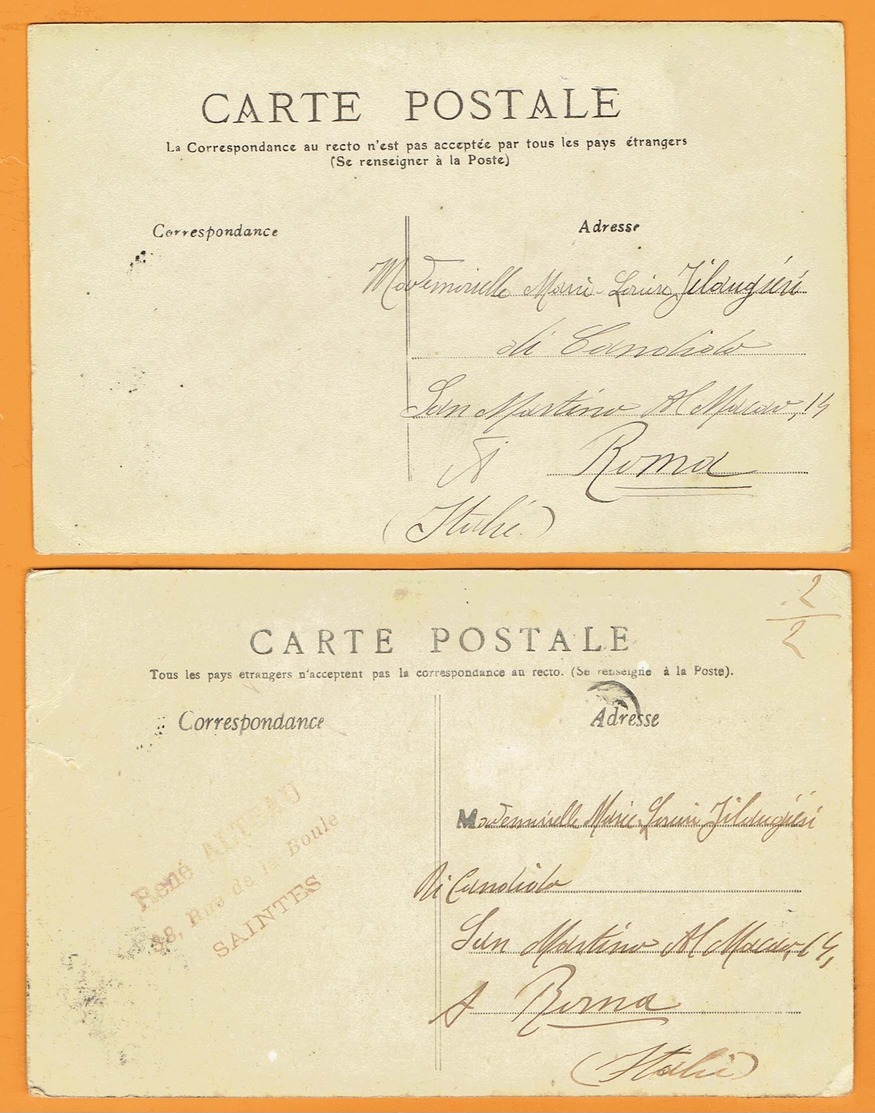 CARTE POSTALE
La Correspondance au recto n'est pas acceptée par tous les pays étrangers
(Se renseigner à la Poste)
Correspondance
Adresse
Mademoiselle Marie-Louise
di Candido
San Martino Al Macao, 14
A Roma
(Italie)
2
2
CARTE POSTALE
Tous les pays etrangers n'acceptent pas la correspondance au recto. (Se renseigne à la Poste).
Correspondance
Adresse
René
38, Rue de la Boule
SAINTES
Mademoiselle Marie-Louise
Di Candido
San Martino Al Macao, 14,
A Roma
(Italie)